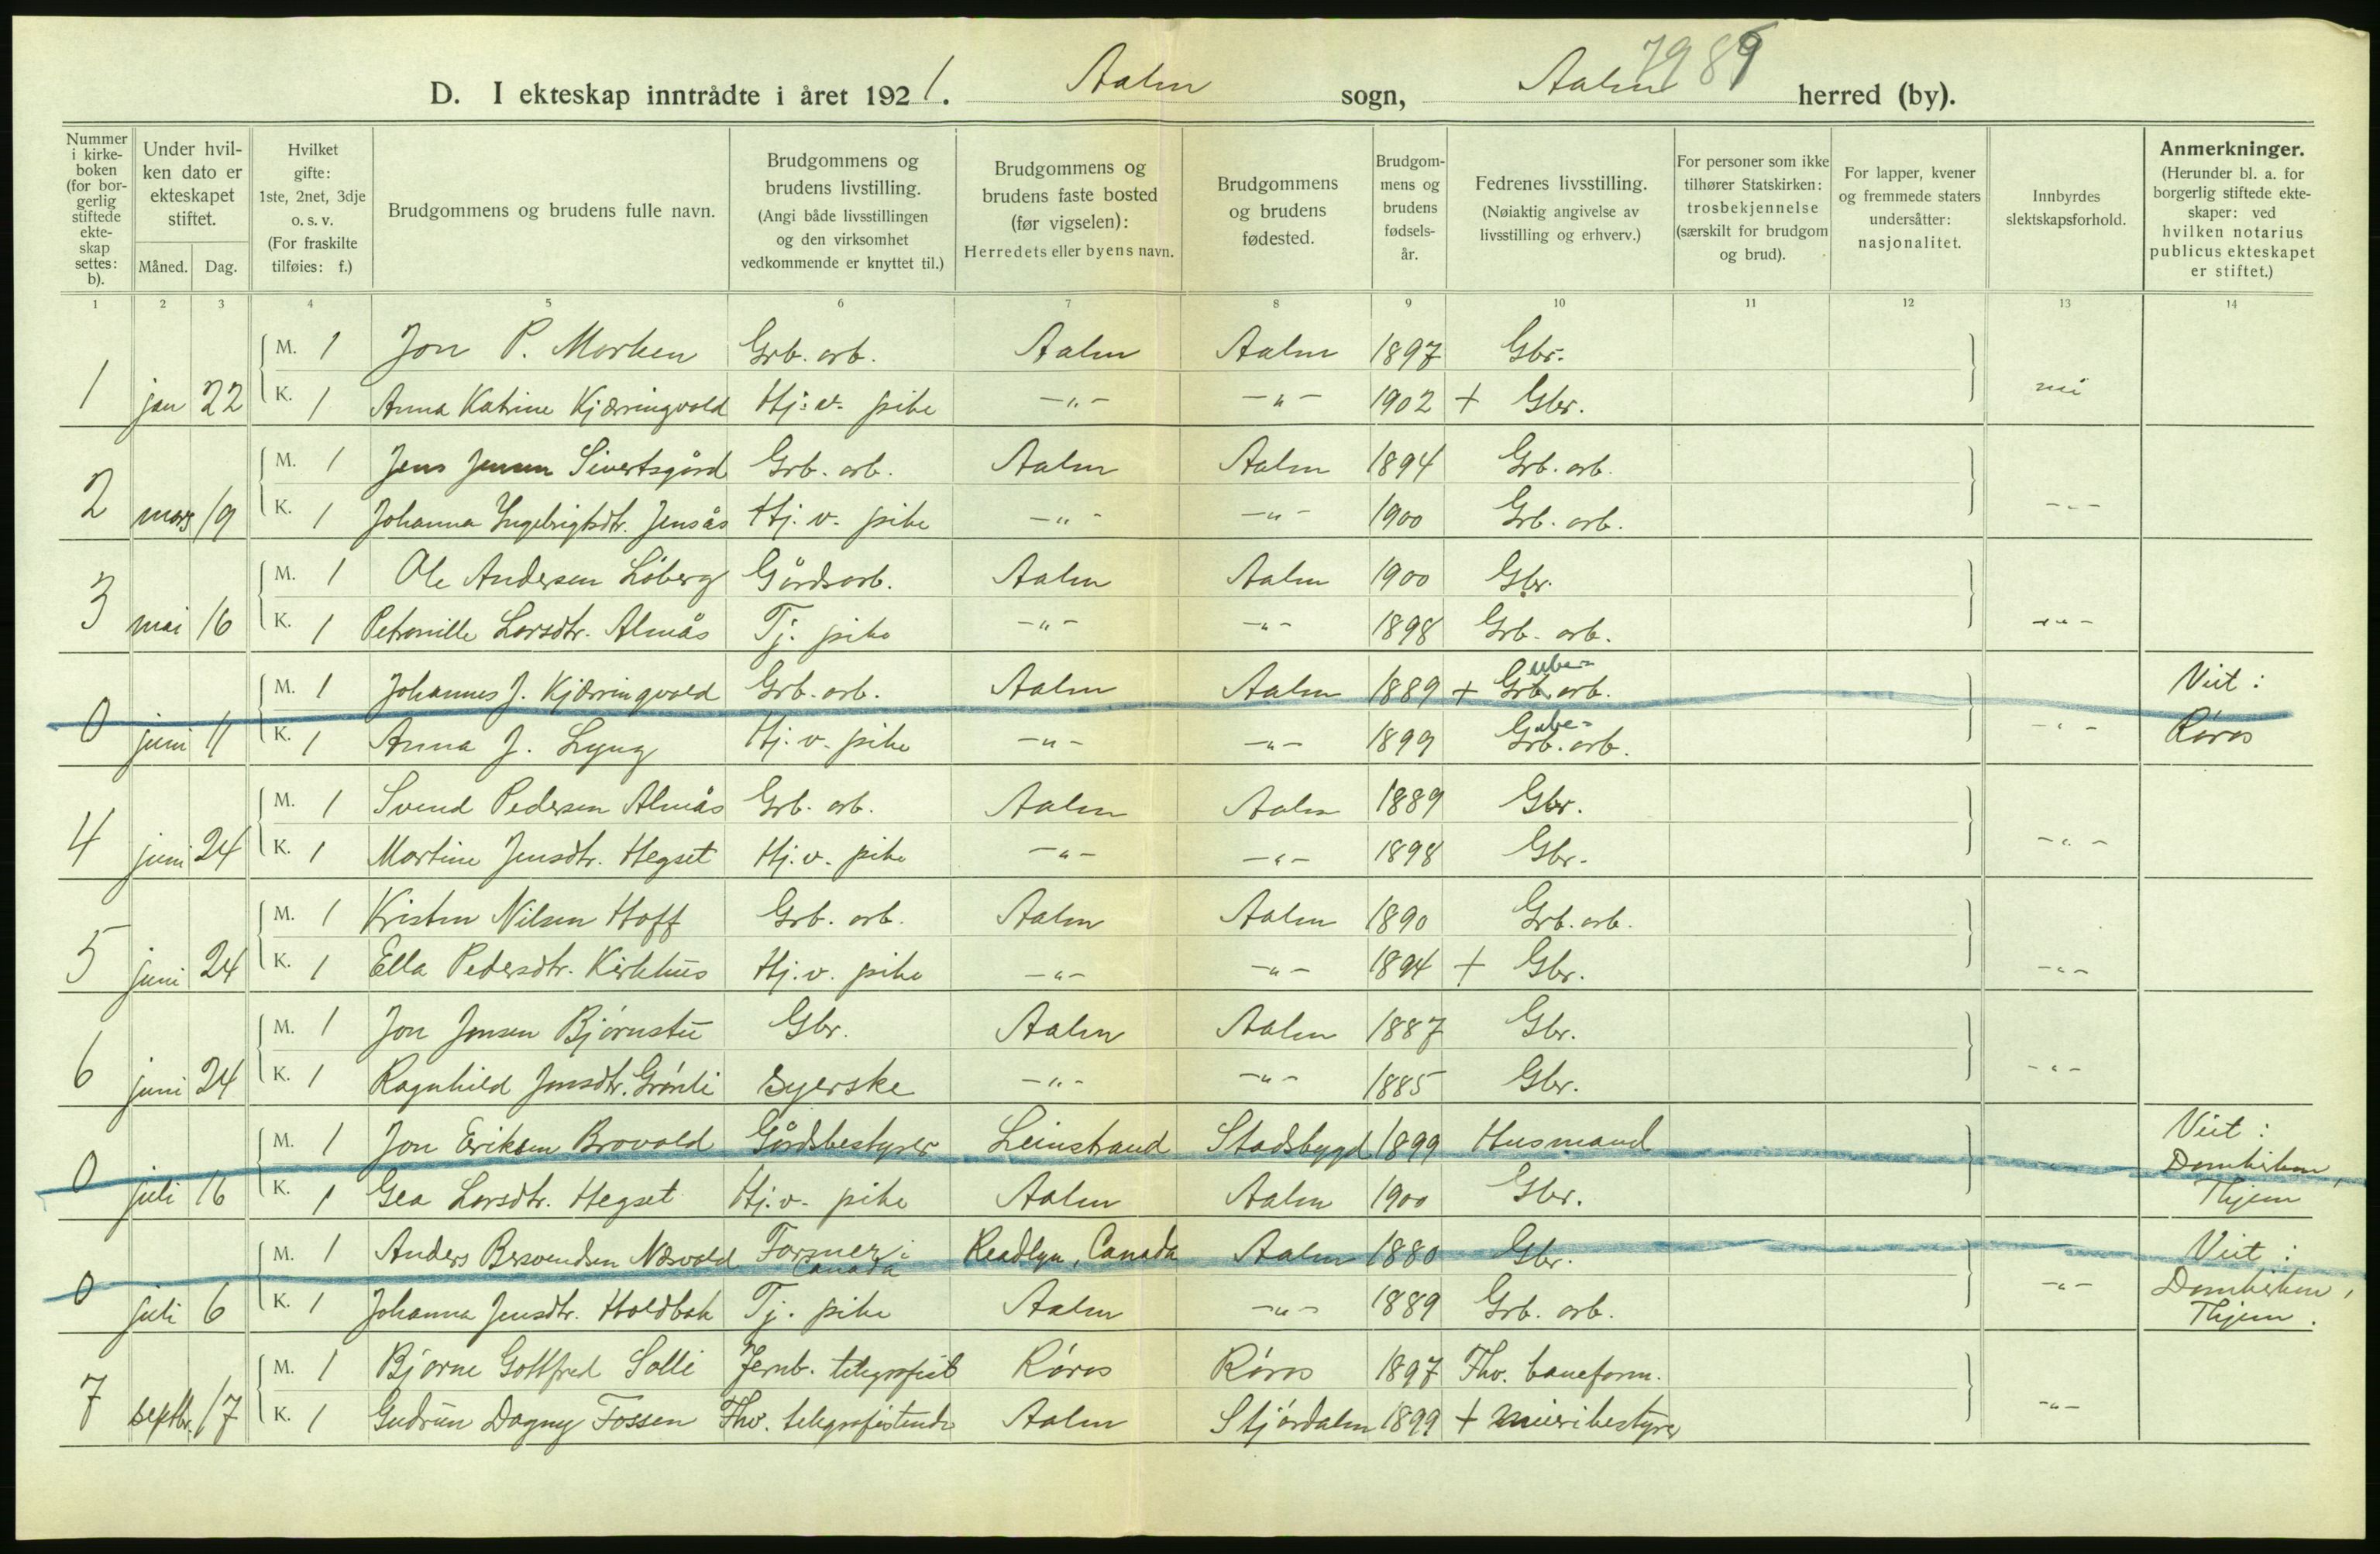 7989
D. I ekteskap inntrådte i året 1921. Aalen sogn, Aalen herred (by).
Nummer i kirkeboken (for borgerlig stiftede ekteskap settes: b).
Under hvilken dato er ekteskapet stiftet.
Måned. Dag.
Hvilket gifte: 1ste, 2net, 3dje o. s. v. (For fraskilte tilføies: f.)
Brudgommens og brudens fulle navn.
Brudgommens og brudens livstilling. (Angi både livsstillingen og den virksomhet vedkommende er knyttet til.)
Brudgommens og brudens faste bosted (før vigselen): Herredets eller byens navn.
Brudgommens og brudens fødested.
Brudgommens og brudens fødselsår.
Fedrenes livsstilling. (Nøiaktig angivelse av livsstilling og erhverv.)
For personer som ikke tilhører Statskirken: trosbekjennelse (særskilt for brudgom og brud).
For lapper, kvener og fremmede staters undersåtter: nasjonalitet.
Innbyrdes slektskapsforhold.
Anmerkninger. (Herunder bl. a. for borgerlig stiftede ekteskaper: ved hvilken notarius publicus ekteskapet er stiftet.)
1 2 3 4 5 6 7 8 9 10 11 12 13 14
M. 1 Jon P. Morken Grb. arb. Aalen Aalen 1897 Gbr.
1 jan 22 K. 1 Anna Katrine Kjærringvold Hj. v. pike -"- -"- 1902 + Gbr. nei
M. 1 Jens Jensen Sivertsgård Grb. arb. Aalen Aalen 1894 Grb. arb.
2 mars 19 K. 1 Johanna Ingebrigtsdtr. Jensås Hj. v. pike -"- -"- 1900 Grb. arb. -"-
M. 1 Ole Andersen Løberg Gårdsarb. Aalen Aalen 1900 Gbr.
3 mai 16 K. 1 Petronille Larsdtr. Almås Tj. pike -"- -"- 1898 Grb. arb. -"-
M. 1 Johannes J. Kjærringvold Grb. arb. Aalen Aalen 1889 + Grb. arb. Viet:
0 juni 11 K. 1 Anna J. Lyng Hj. v. pike -"- -"- 1899 Grb. arb. -"- Røros
M. 1 Svend Pedersen Almås Grb. arb. Aalen Aalen 1889 Gbr.
4 juni 24 K. 1 Martine Jensdtr. Hegset Hj. v. pike -"- -"- 1898 Gbr. -"-
M. 1 Kristen Nilsen Hoff Grb. arb. Aalen Aalen 1890 Grb. arb.
5 juni 24 K. 1 Ella Pedersdtr. Kirkhus Hj. v. pike -"- -"- 1894 + Gbr. -"-
M. 1 Jon Jonsen Bjørnstu Gbr. Aalen Aalen 1887 Gbr.
6 juni 24 K. 1 Ragnhild Jonsdtr. Grønli Syerske -"- -"- 1885 Gbr. -"-
M. 1 Jon Eriksen Brovold Gårdsbestyrer Leinstrand Stadsbygd 1899 Husmand Viet: Domkirken,
0 juli 16 K. 1 Gea Larsdtr. Hegset Hj. v. pike Aalen Aalen 1900 Gbr. Thjem
M. 1 Anders Bersvendsen Næsvold Farmer i Canada Readlyn, Canada Aalen 1880 Gbr. Viet:
0 juli 6 K. 1 Johanna Jensdtr. Holdbak Tj. pike Aalen -"- 1889 Grb. arb. -"- Domkirken, Thjem.
M. 1 Bjarne Gottfred Solli Jernb. telegrafist Røros Røros 1897 Fhv. baneform.
7 septbr. 17 K. 1 Gudrun Dagny Fossen Fhv. telegrafistinde Aalen Stjørdalen 1899 + Meieribestyrer -"-